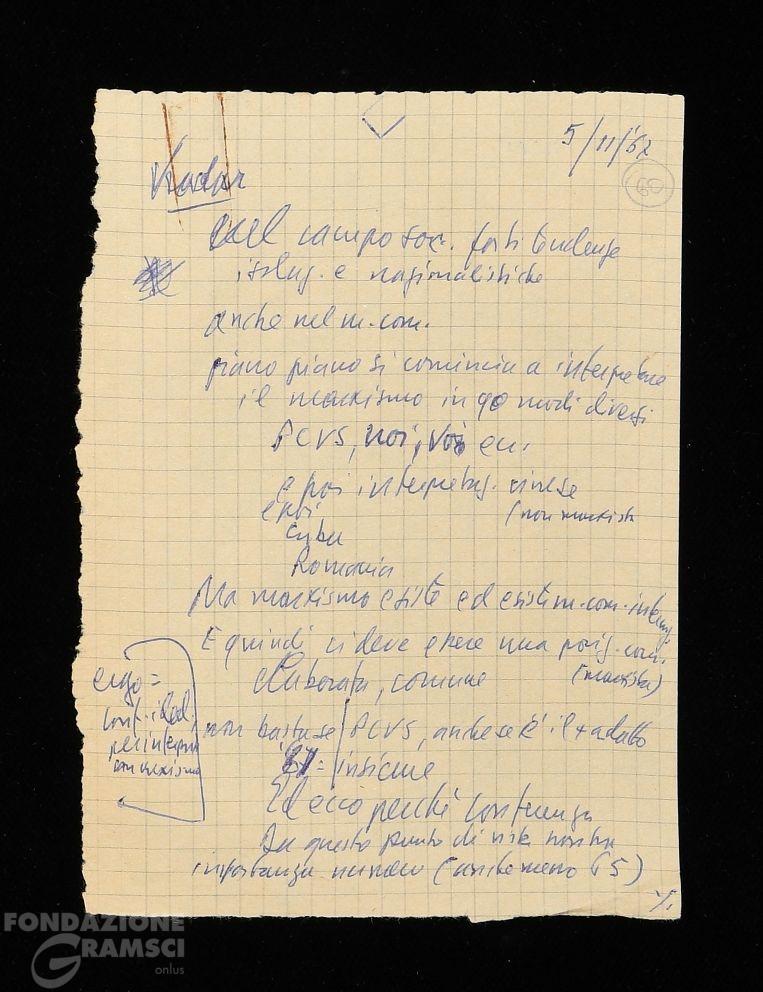 5/11/67
Kadar
nel campo soc. forti tendenze
isolaz. e nazionalistiche
anche nel m. com.
piano piano si comincia a interpretare
il marxismo in 90 modi diversi
PCUS, noi, voi ecc.
e poi interpretaz. cinese
(non marxista
e poi
Cuba
Romania
Ma marxismo esiste ed esiste m. com. internaz.
E quindi ci deve essere una posiz. com.
(marxista)
elaborata, comune
ergo =
conf. ideol.
per interpret.
marxismo
non basta se PCUS, anche se è il + adatto
= insieme
Ed ecco perché conferenza
Da questo punto di vista non ha
importanza numero (anche meno 65)
./.
FONDAZIONE
GRAMSCI
onlus